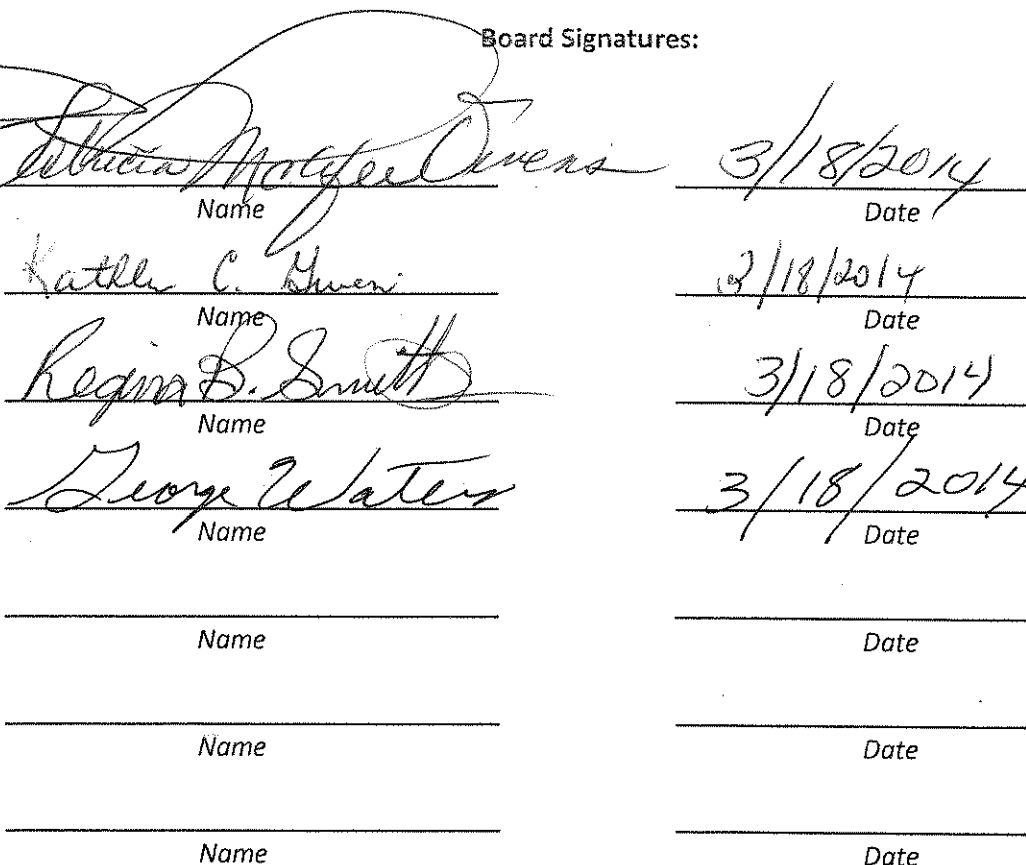 Board Signatures:
Patricia McAfee Owens 3/18/2014
Name Date
C. 3/18/2014
Name Date
Regina B. Smith 3/18/2014
Name Date
George Waters 3/18/2014
Name Date
Name Date
Name Date
Name Date